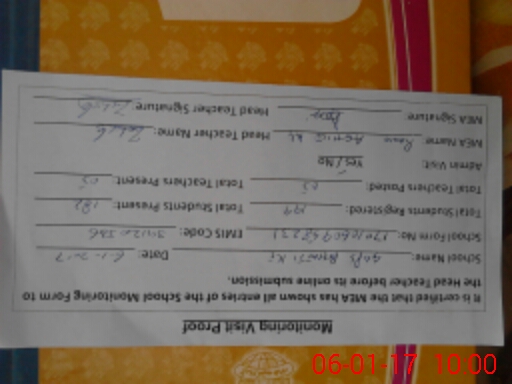 Monitoring Visit Proof
It is certified that the MEA has shown all entries of the School Monitoring Form to
the Head Teacher before its online submission.
School Name: GGPS Date: 6-1-2017
School Form No: EMIS Code:
Total Students Registered: 199 Total Students Present: 182
Total Teachers Posted: 05 Total Teachers Present: 05
Admin Visit: Yes / No
MEA Name: Head Teacher Name:
MEA Signature: Head Teacher Signature:
06-01-17 10:00